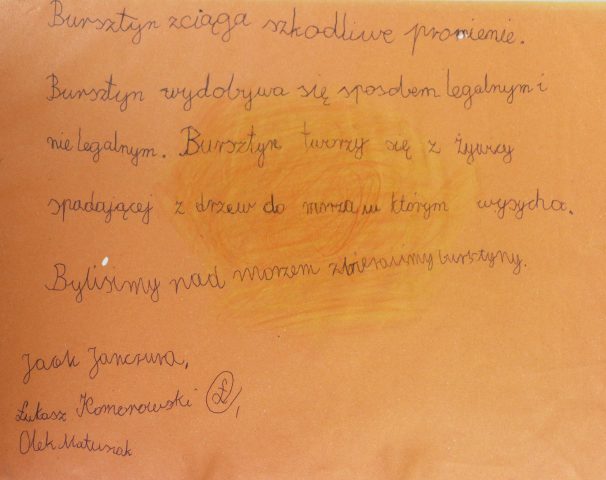 Bursztyn zciąga szkodliwe promienie.
Bursztyn wydobywa się sposobem legalnym i
nielegalnym. Bursztyn tworzy się z żywicy
spadającej z drzew do morza w którym wysycha.
Bylisimy nad morzem zbieralimy bursztyny.
Jacek Janczura,
Łukasz Komorowski Ł,
Olek Matusiak